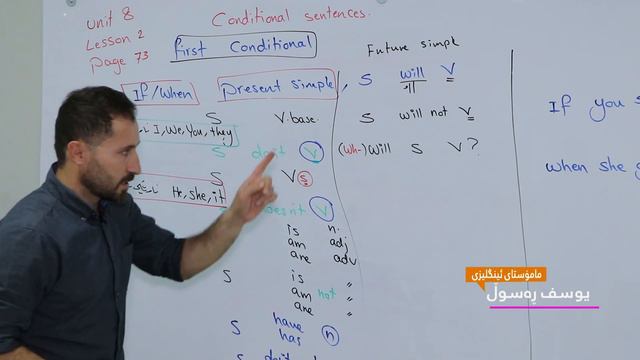 unit 8
Lesson 2
page 73
Conditional sentences.
first Conditional
Future simple
If/when
present simple, S will V
S V.base. S will not V
I, We, You, they
S don't V (wh-) will S V?
S V s
He, she, it
doesn't V
is n.
am adj
are adv
S is "
am not "
are "
S have
has n
S don't
If you s
when she g
مامۆستای ئینگلیزی
یوسف ڕەسوڵ